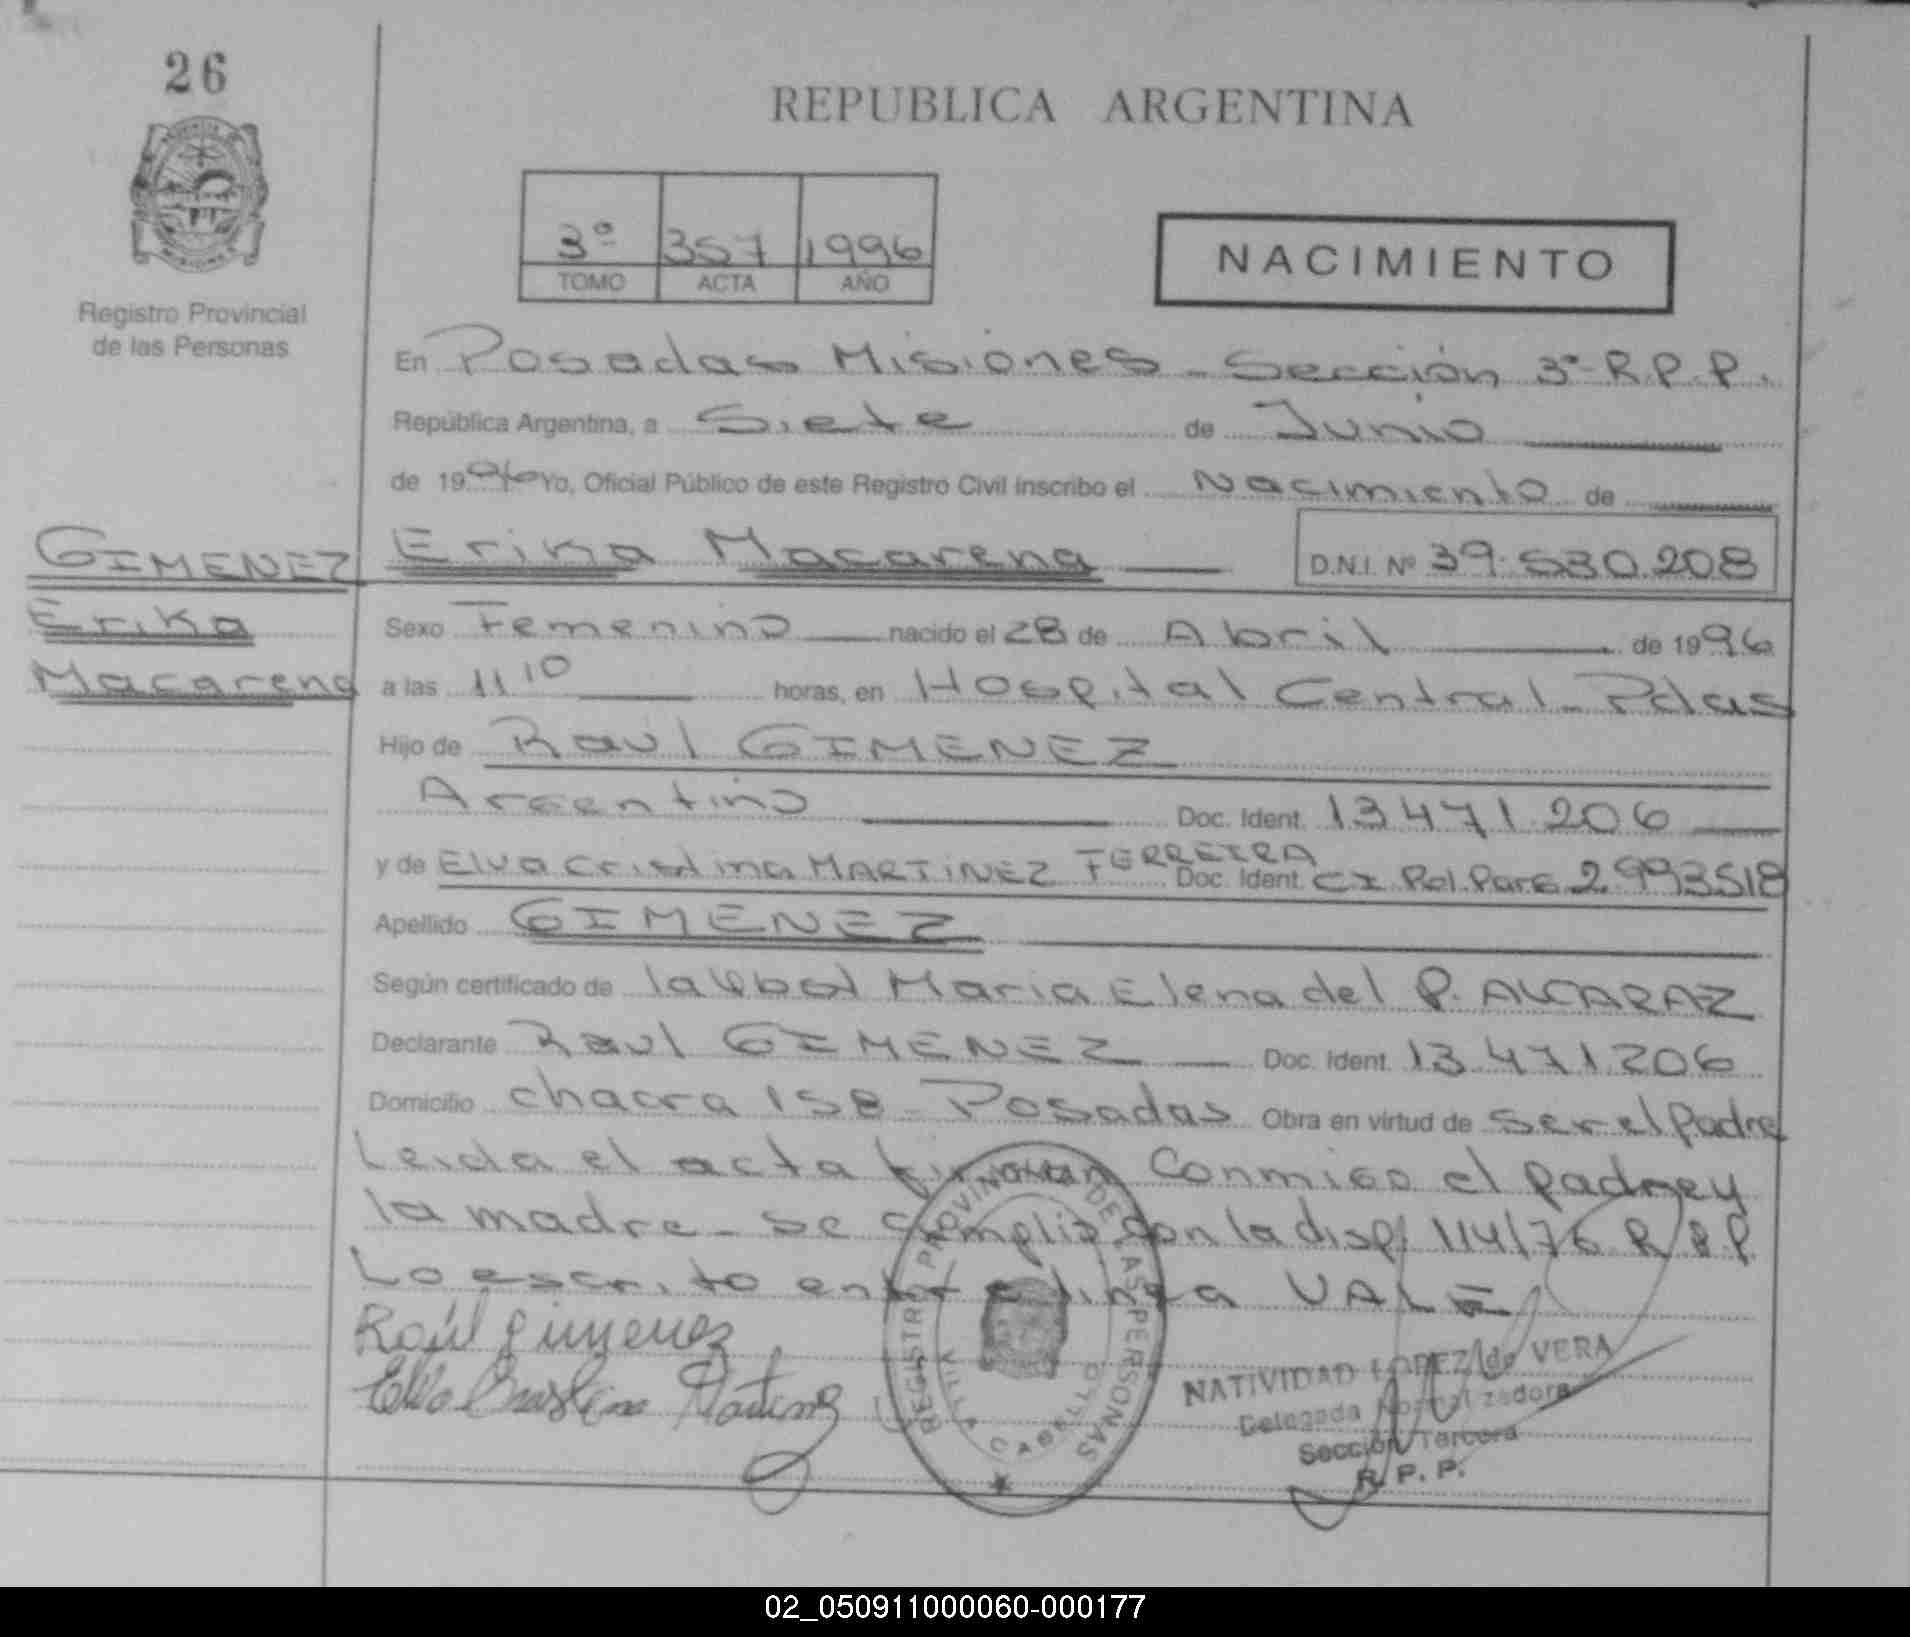 26
Registro Provincial
de las Personas
REPUBLICA ARGENTINA
3º 357 1996
TOMO ACTA AÑO
NACIMIENTO
En Posadas Misiones - Sección 3º- R.P.P.
República Argentina, a Siete de Junio
de 1996 Yo, Oficial Público de este Registro Civil inscribo el Nacimiento de
GIMENEZ Erika Macarena D.N.I. Nº 39.530.208
Erika
Macarena
Sexo Femenino nacido el 28 de Abril de 1996
a las 11 10 horas, en Hospital Central - Pdas
Hijo de Raúl GIMENEZ
Argentino Doc. Ident. 13.471.206
y de Elva Cristina MARTINEZ FERREIRA Doc. Ident. CI Pol. Parg 2993518
Apellido GIMENEZ
Según certificado de la María Elena del P. ALCARAZ
Declarante Raul GIMENEZ Doc. Ident. 13.471.206
Domicilio chacra 158 - Posadas Obra en virtud de ser el padre
Leida el acta firman conmigo el padre y
la madre - se cumplio con la disp/ 114/76 R.P.P
Lo escrito entre linea VALE
Raúl Gimenez
Elva Cristina Martinez
REGISTRO PROVINCIAL DE LAS PERSONAS
VILLA CABELLO
NATIVIDAD LOPEZ de VERA
Delegada Normalizadora
Sección Tercera
R. P. P.
02_050911000060-000177